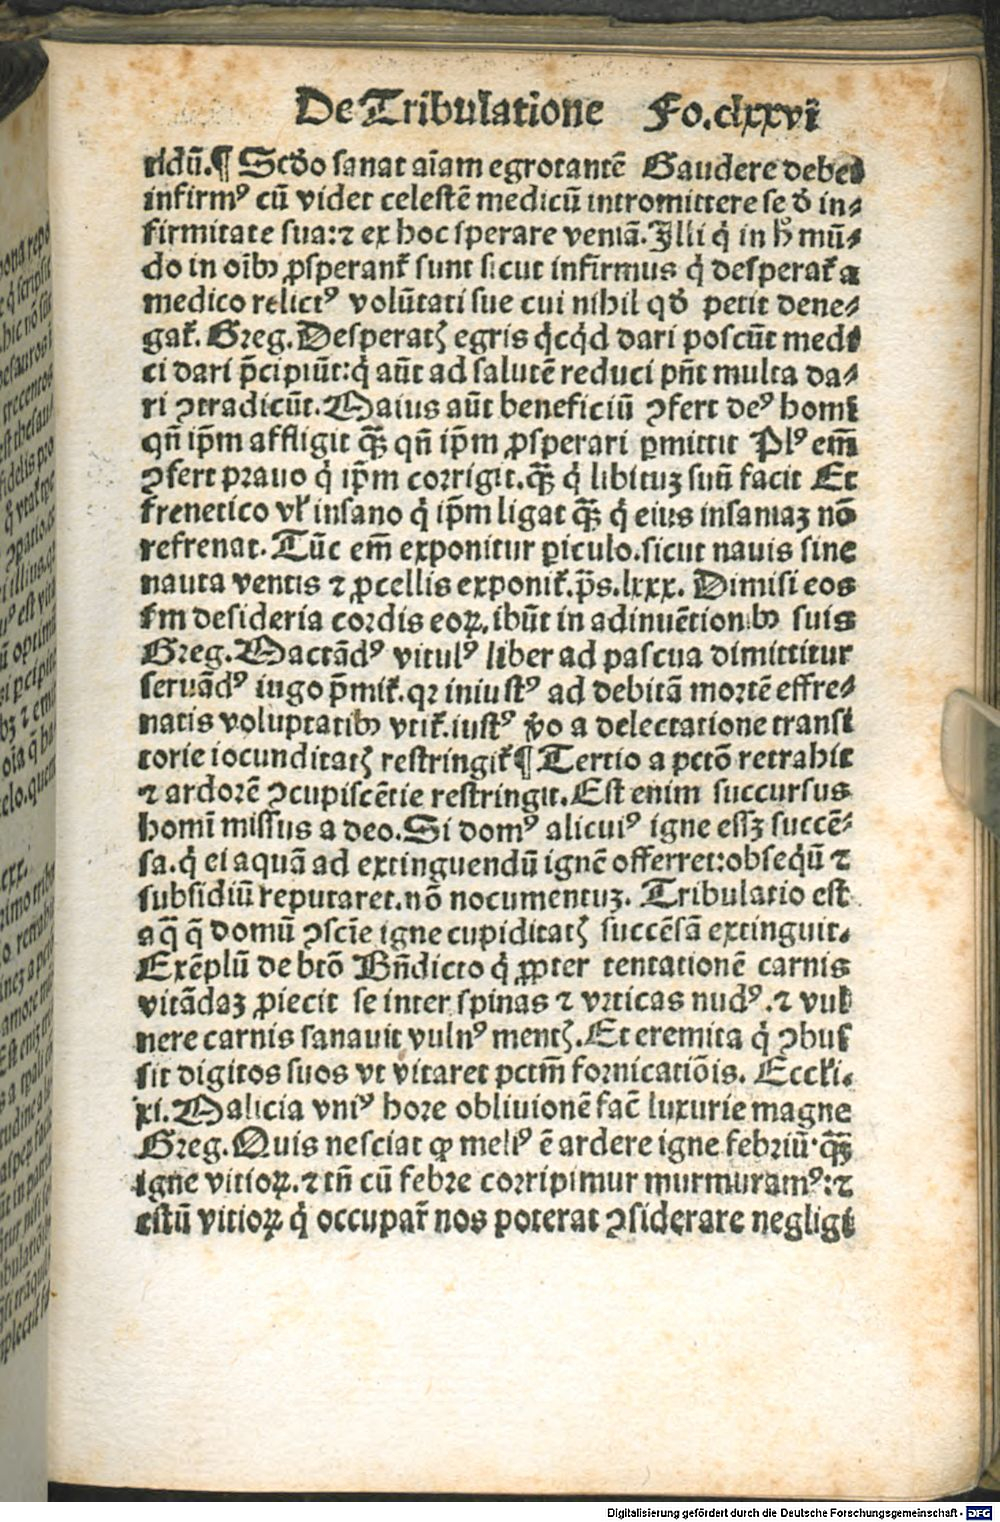 De Tribulatione Fo.clxxvi
ridū.¶ Scďo sanat aīam egrotantē Gaudere debet
infirmꝰ cū videt celestē medicū intromittere se ď in⸗
firmitate sua:⁊ ex hoc sperare veniā. Illi q̇ in hͦ mū⸗
do in oībꝫ ꝓsperanť sunt sicut infirmus q̇ desperať a
medico relictꝰ volūtati sue cui nihil qď petit dene⸗
gať. Greg. Desperatꝭ egris q̇cq̇d dari poscūt medi
ci dari p̄cipiūt:q̇ aūt ad salutē reduci pn̄t multa da⸗
ri ꝯtradicūt. Maius aūt beneficiū ꝯfert deꝰ homi
qn̄ ip̄m affligit qꝫ̄ qn̄ ip̄m ꝓsperari ꝑmittit Plꝰ em̄
ꝯfert prauo q̇ ip̄m corrigit. qꝫ̄ q̇ libituꝫ suū facit Et
frenetico vł insano q̇ ip̄m ligat qꝫ̄ q̇ eius insaniaꝫ nō
refrenat. Tūc em̄ exponitur ꝑiculo. sicut nauis sine
nauta ventis ⁊ ꝓcellis exponiť. p̄s. lxxx. Dimisi eos
fm desideria cordis eoꝝ. ibūt in adinuētionibꝫ suis
Greg. Mactādꝰ vitulꝰ liber ad pascua dimittitur
seruādꝰ iugo p̄miť. qꝛ iniustꝰ ad debitā mortē effre⸗
natis voluptatibꝫ vtiť. iustꝰ v̊o a delectatione transi
torie iocunditatꝭ restringiť ¶ Tertio a pctō retrahit
⁊ ardorē ꝯcupiscētie restringit. Est enim succursus
homī missus a deo. Si domꝰ alicuiꝰ igne essꝫ succē⸗
sa. q̇ ei aquā ad extinguendū ignē offerret:obseq̇ū ⁊
subsidiū reputaret. nō nocumentuꝫ. Tribulatio est
aq̄ q̄ domū ꝯscīe igne cupiditatꝭ succēsā extinguit.
Exēplū de btō Bn̄dicto q̇ ꝓpter tentationē carnis
vitādaꝫ ꝓiecit se inter spinas ⁊ vrticas nudꝰ. ⁊ vul
nere carnis sanauit vulnꝰ mentꝭ. Et eremita q̇ ꝯbus
sit digitos suos vt vitaret pctm̄ fornicatiōis. Eccłi.
xi. Malicia vniꝰ hore obliuionē fac̄ luxurie magne
Greg. Quis nesciat ꝙ meliꝰ ē ardere igne febriū. qꝫ̄
igne vitioꝝ. ⁊ tn̄ cū febre corripimur murmuramꝰ:⁊
estū vitioꝝ q̇ occupar̄ nos poterat ꝯsiderare negligi
Digitalisierung gefördert durch die Deutsche Forschungsgemeinschaft - DFG